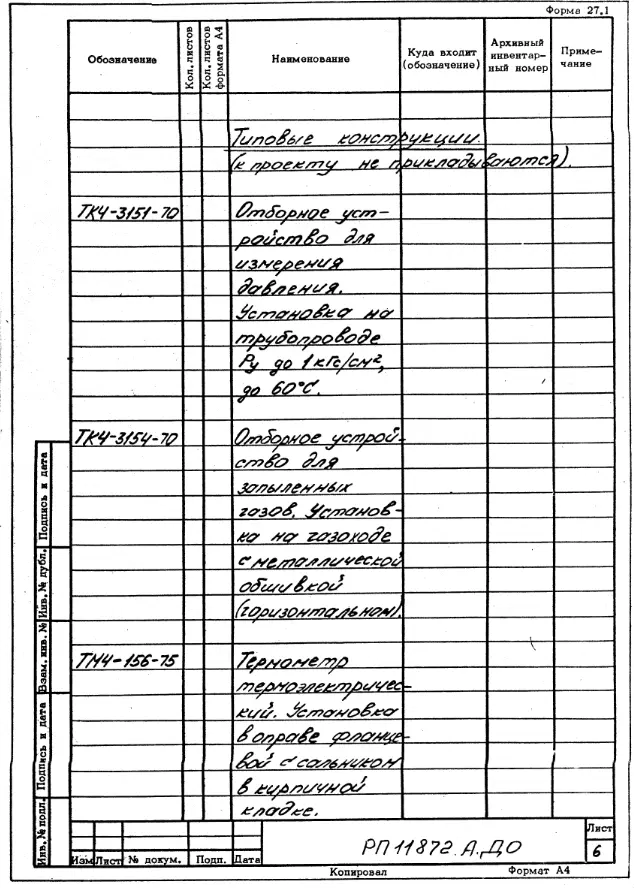 Форма 27.1
Обозначение
Кол. листов
Кол. листов формата А4
Наименование
Куда входит (обозначение)
Архивный инвентарный номер
Примечание
Типовые конструкции.
(к проекту не прикладываются).
ТК4-3151-70 Отборное уст-
ройство для
измерения
давления.
Установка на
трубопроводе
Ру до 1 кгс/см²,
до 60°С.
ТК4-3154-70 Отборное устрой-
ство для
запыленных
газов. Установ-
ка на газоходе
с металлической
обшивкой
(горизонтальном).
ТМ4-156-75 Термометр
термоэлектричес-
кий. Установка
в оправе фланце-
вой с сальником
в кирпичной
кладке.
Подпись и дата
Инв. № дубл.
Взам. инв. №
Подпись и дата
Инв. № подл.
Изм Лист № докум. Подп. Дата
РП 11872.А.ДО
Лист
6
Копировал Формат А4